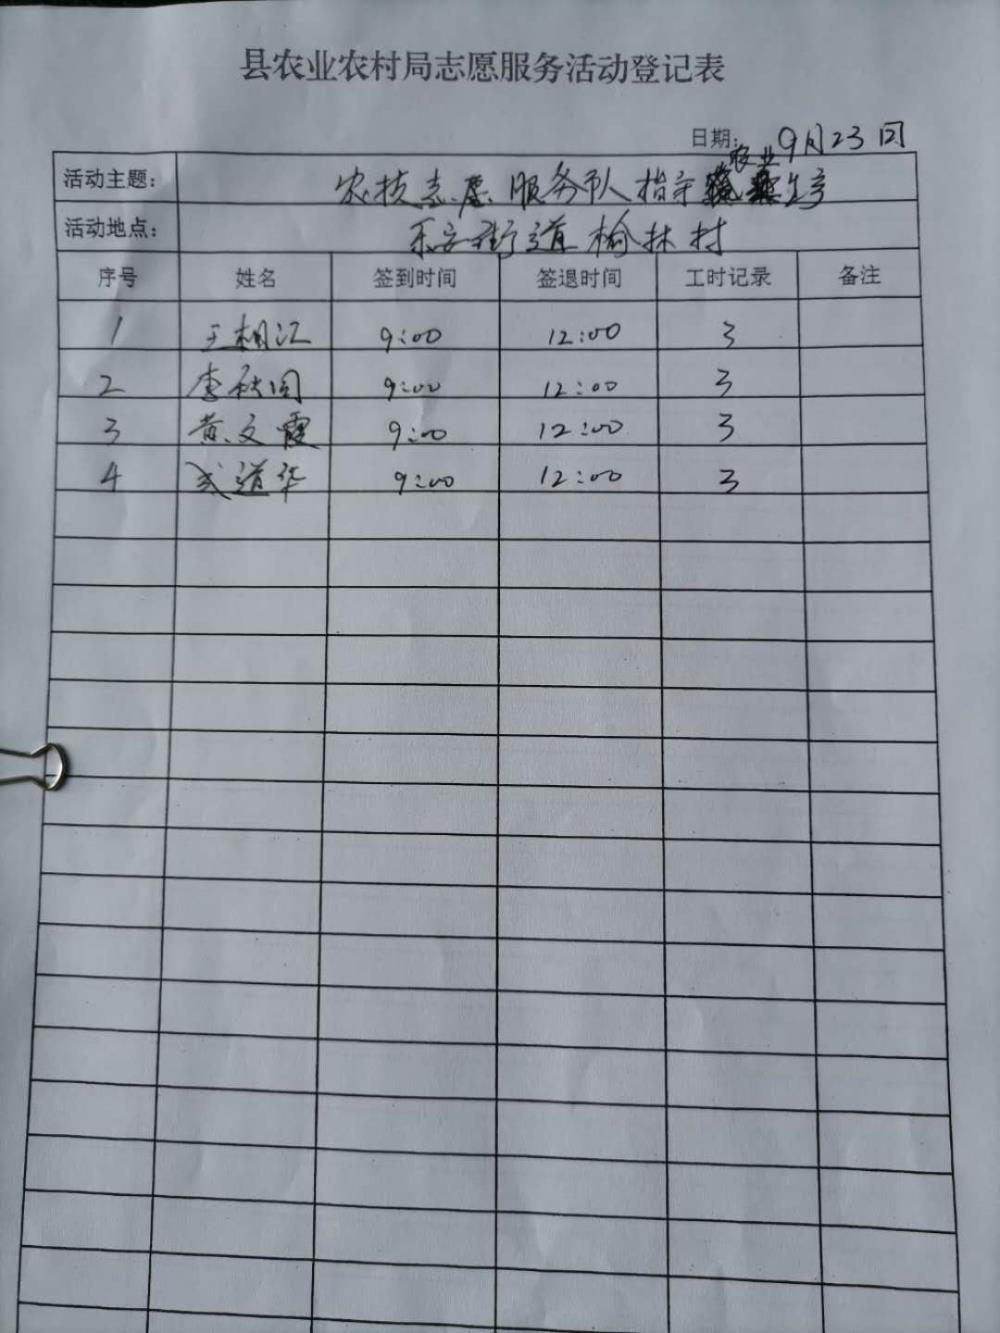 县农业农村局志愿服务活动登记表
日期: 9月23日
活动主题: 农技志愿服务队指导农业生产
活动地点: 乐安街道榆林村
序号 姓名 签到时间 签退时间 工时记录 备注
1 王相江 9:00 12:00 3
2 李秋同 9:00 12:00 3
3 黄文霞 9:00 12:00 3
4 武道华 9:00 12:00 3